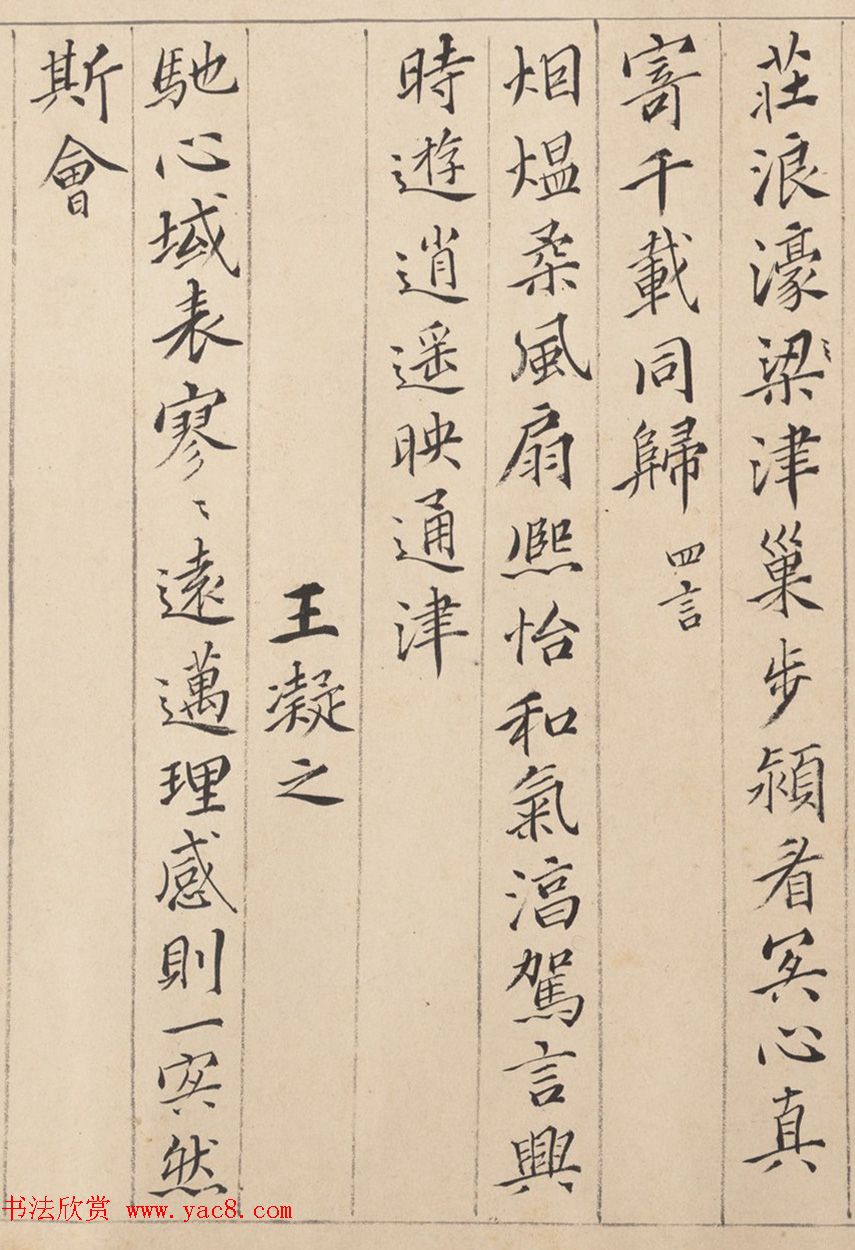 莊浪濠梁〻津巢步潁看冥心真
寄千載同歸 四言
烟熅柔風扇熙怡和氣淳駕言興
時遊逍遥映通津
王凝之
馳心域表寥〻遠邁理感則一冥然
斯會
书法欣赏 www.yac8.com